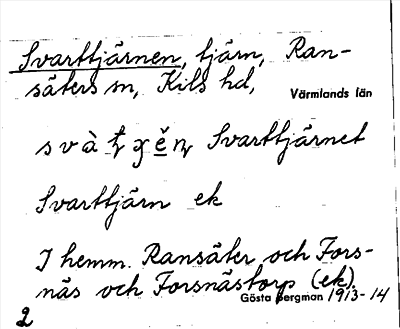 Svarttjärnen, tjärn, Ran-
säters sn, Kils hd,
Värmlands län
Svarttjärnet
Svarttjärn ek
I hemm. Ransäter och Fors-
näs och Forsnästorp (ek).
Gösta Bergman 1913-14
2